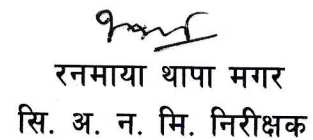 रनमाया थापा मगर
सि. अ. न. मि. निरीक्षक